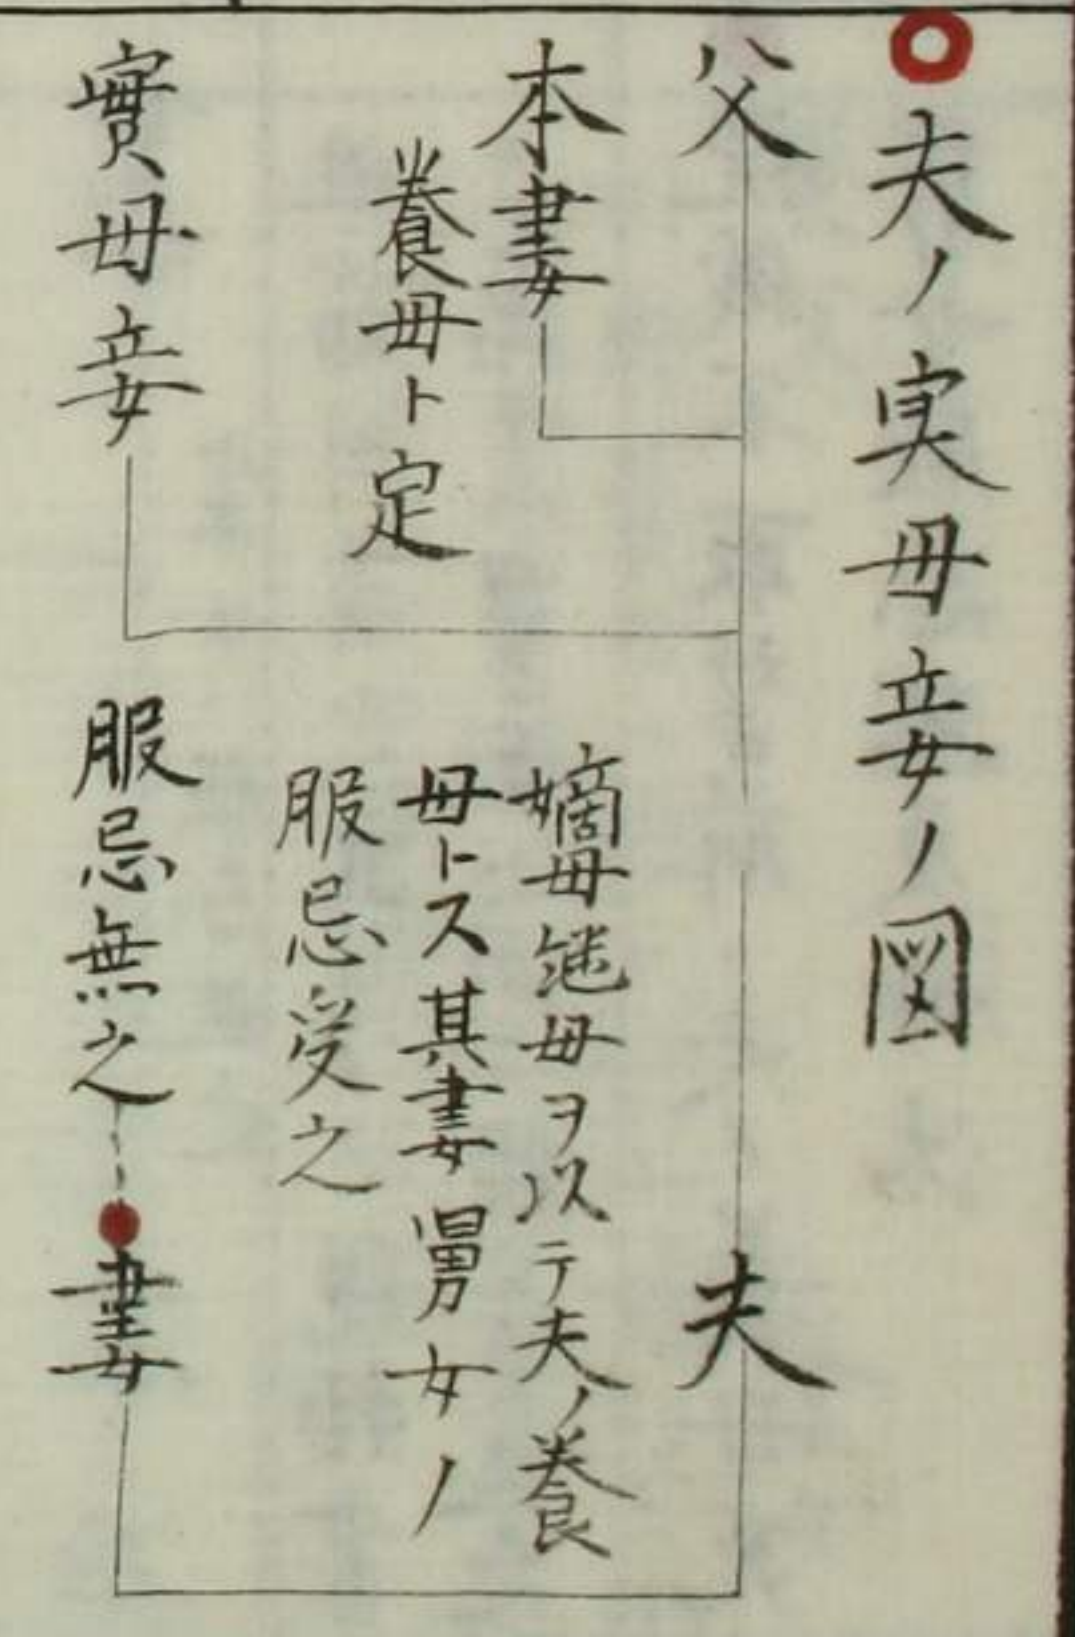 夫ノ実母妾ノ図
父
本妻
養母ト定
實母妾
夫
嫡母継母ヲ以テ夫ノ養
母トス其妻舅女ノ
服忌受之
服忌無之
妻